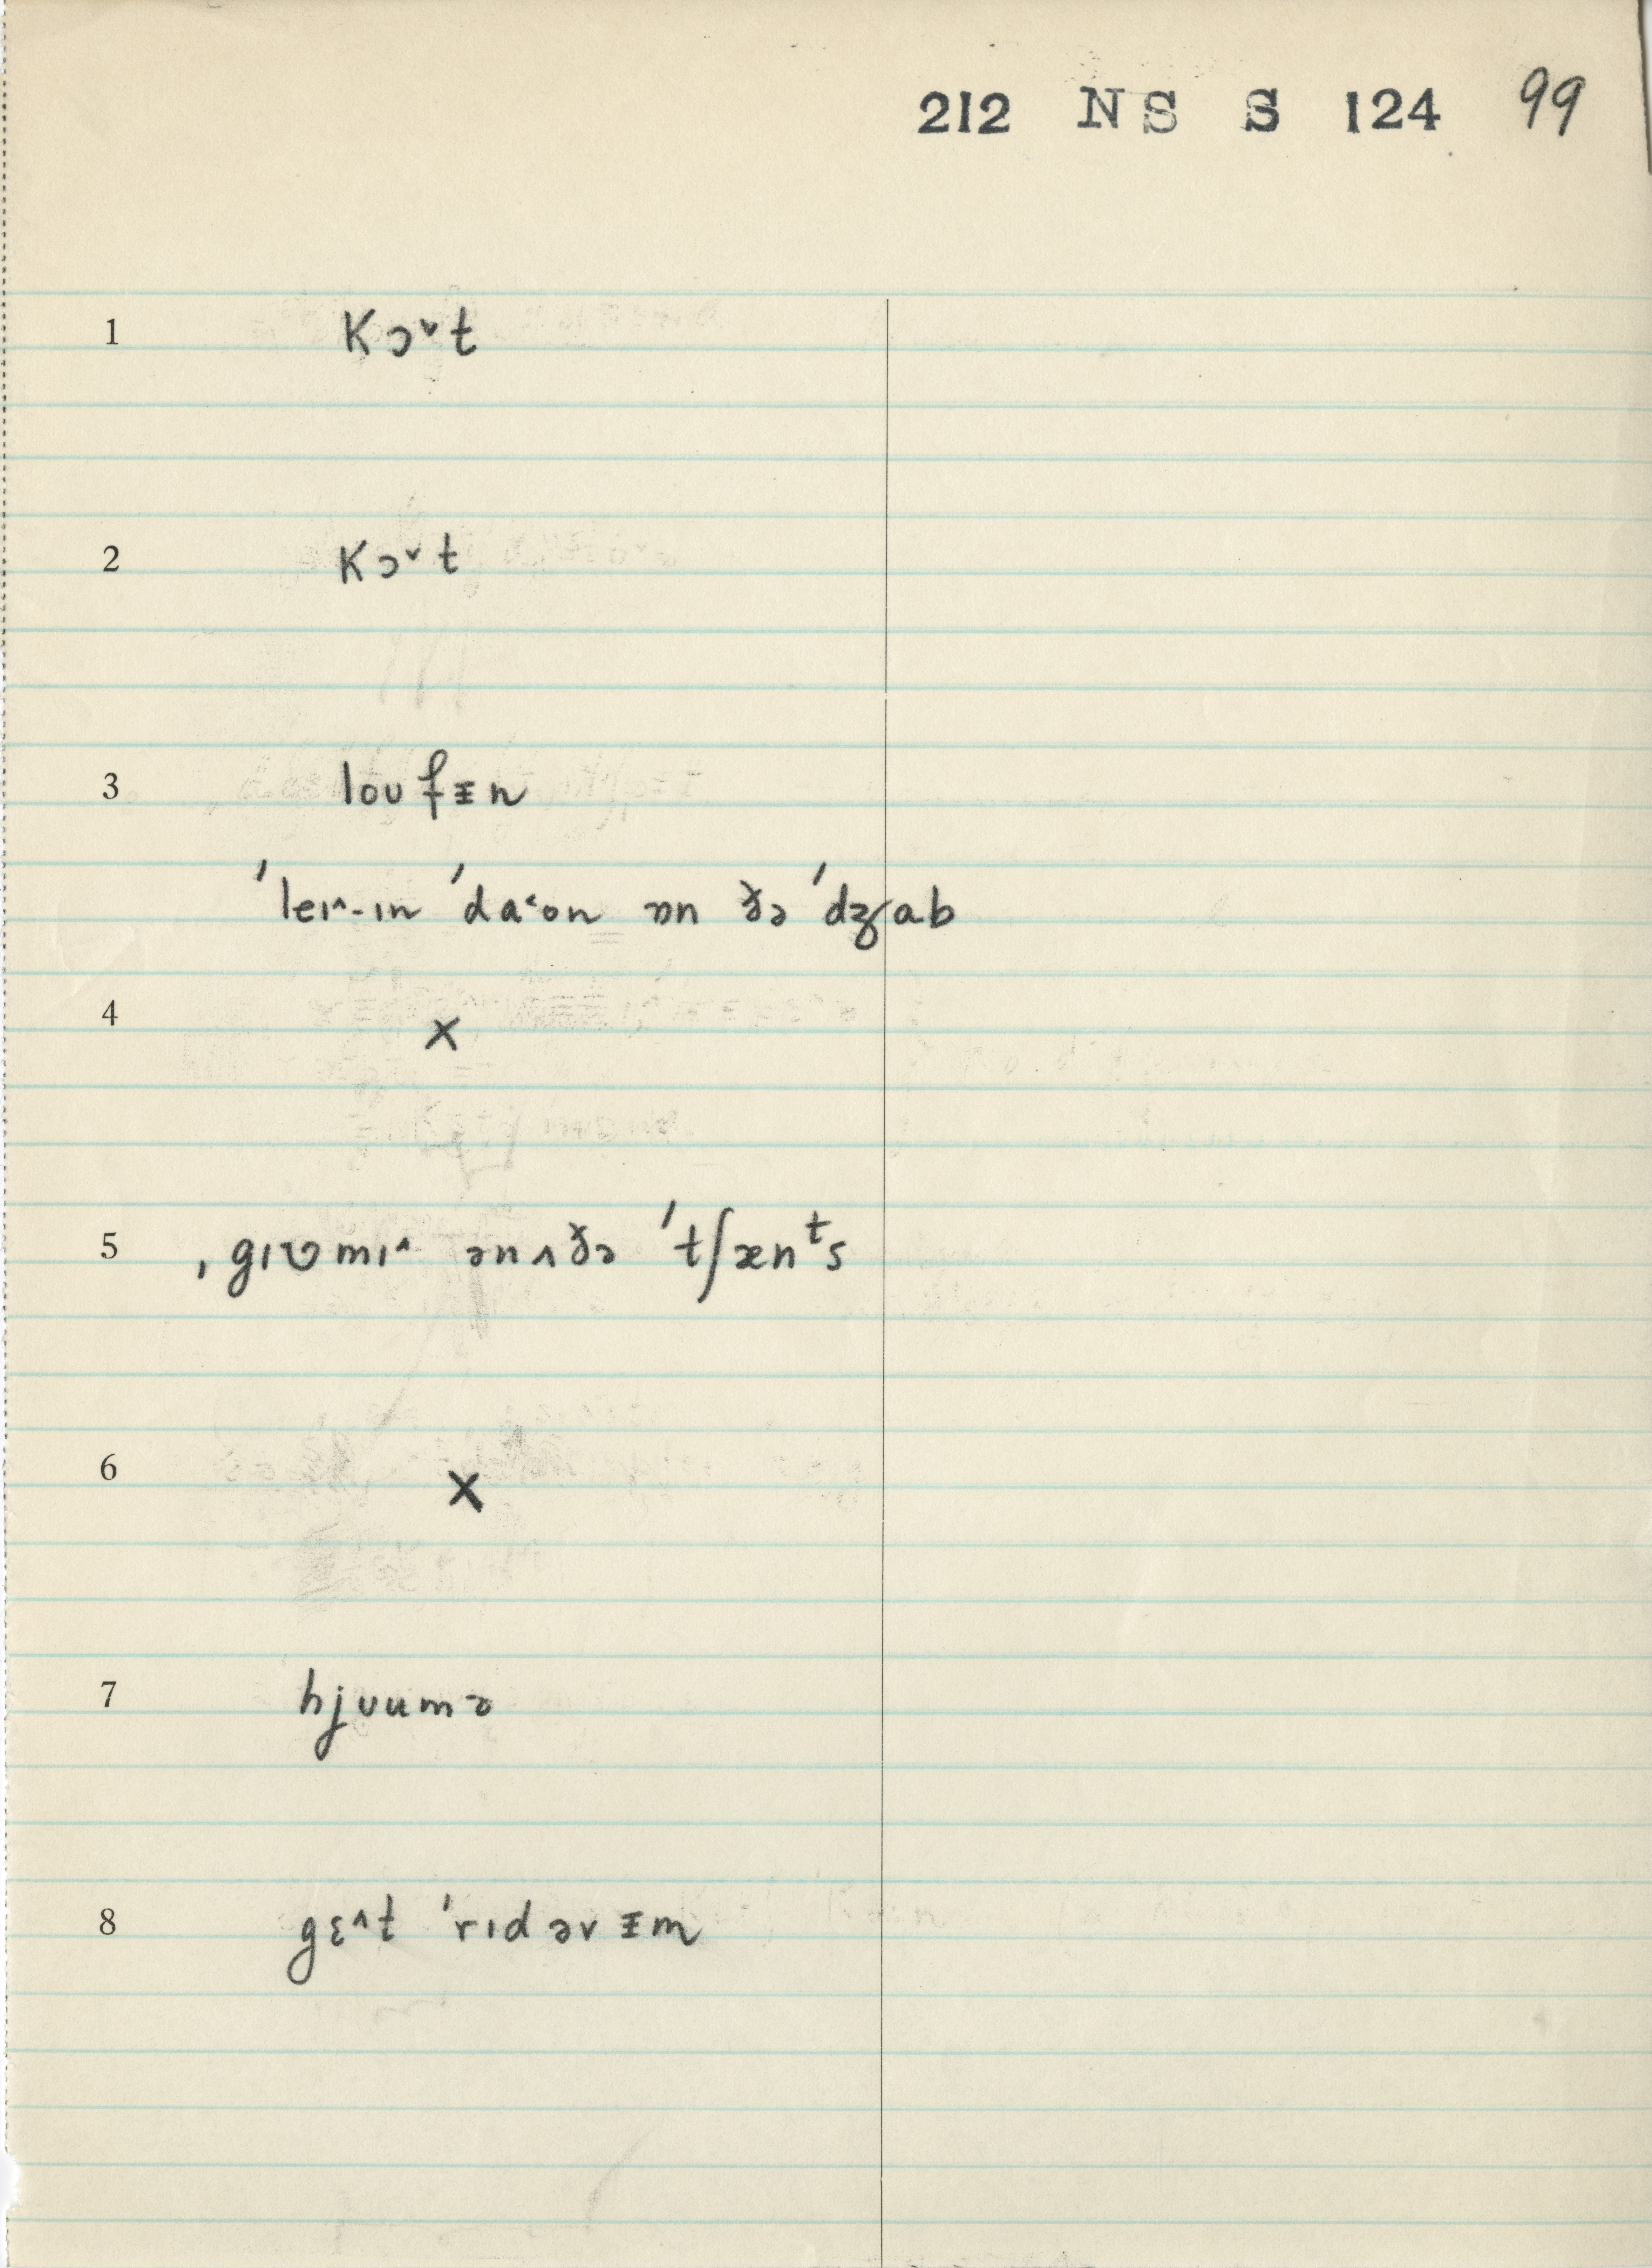 212 NS S 124 99
1 kɔ˅t
2 kɔ˅t
3 loʊfᵻn
ˈleɪ˄-ɪn ˈda˂ʊn ɒn ðə ˈdʒab
4 x
5 ˌgɪʋmɪ˄ ənʌðə ˈtʃænᵗs
6 x
7 hjʊumə
8 gɛ˄t ˈrɪdərᵻm